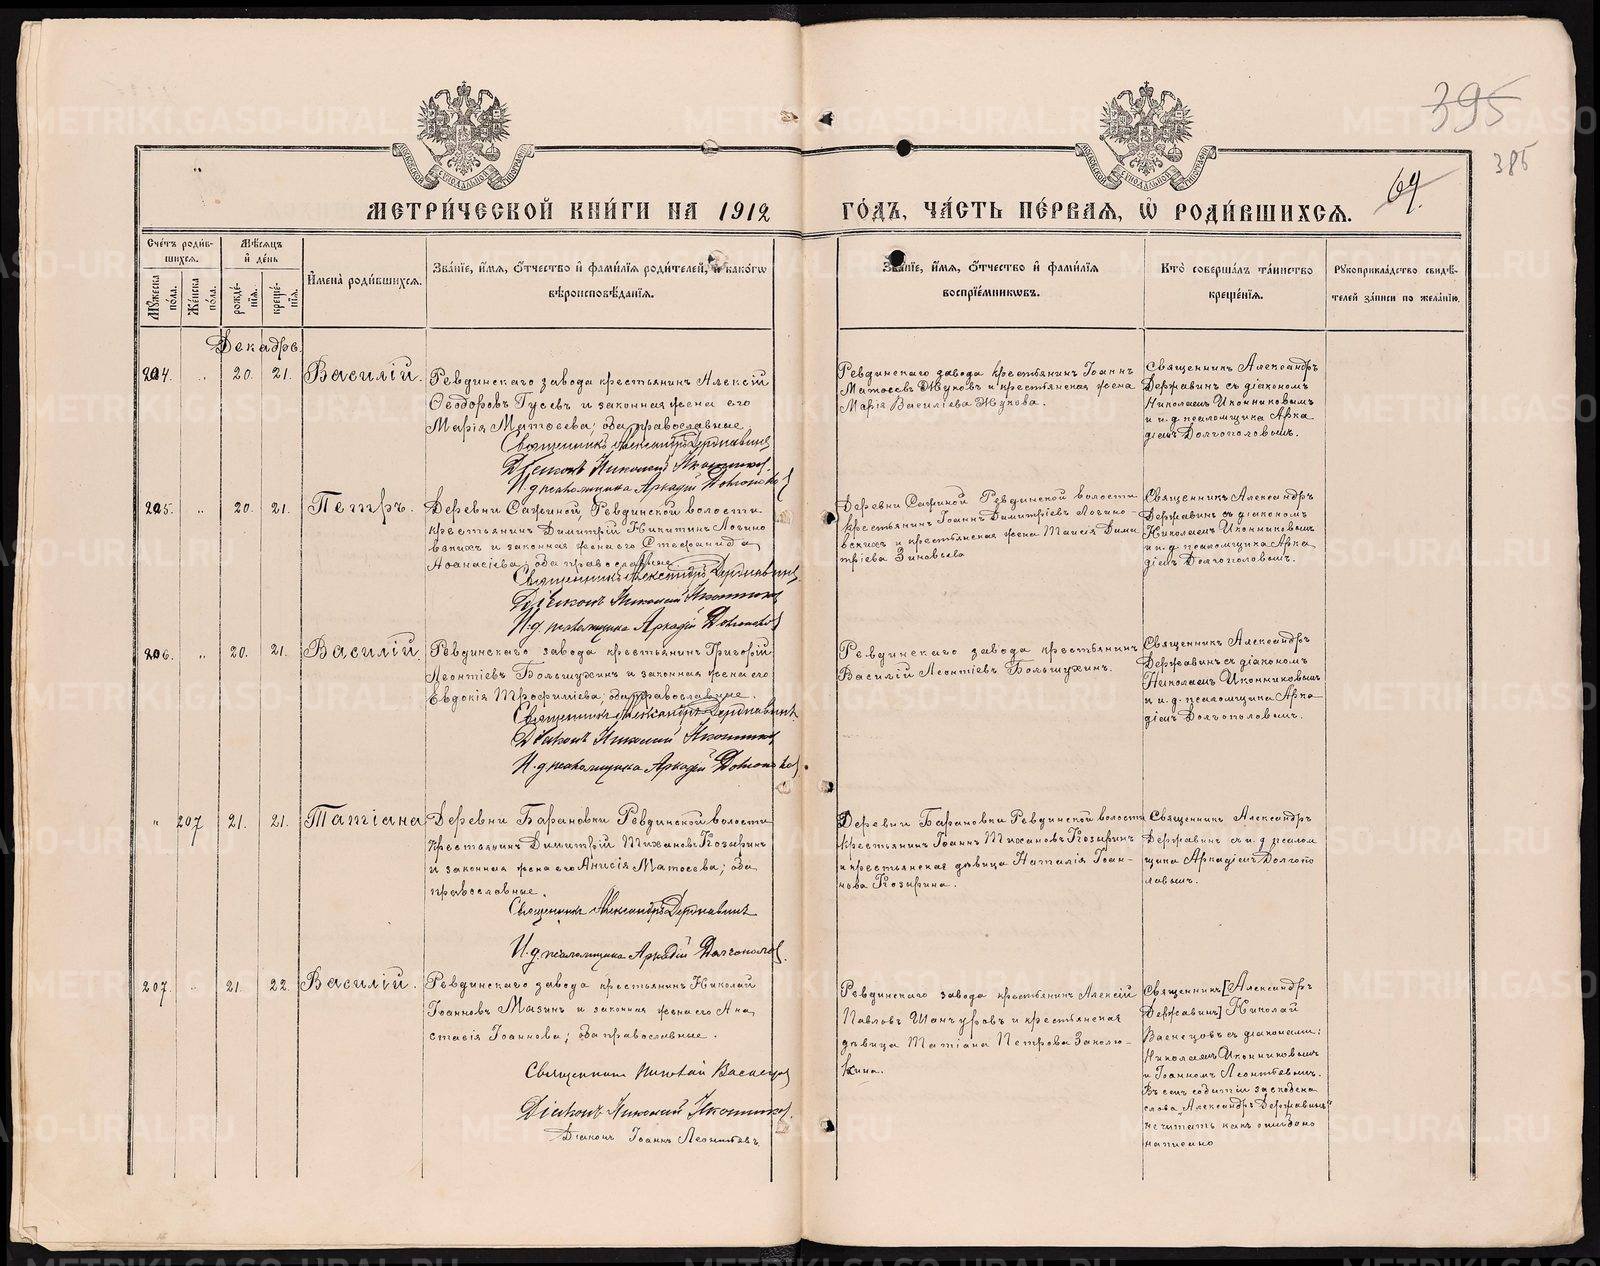 395
385
69.
МЕТРИ́ЧЕСКОЙ КНИ́ГИ НА 1912 ГО́ДЪ, ЧА́СТЬ ПЕ́РВАЯ, Ѡ҆ РОДИ́ВШИХСЯ.
Сче́тъ роди́в-
шихся.
Мѣ́сяцъ
и҆ де́нь
Мꙋ́жеска по́ла.
Же́нска по́ла.
рожде́-нїя.
креще́-нїя.
И҆мена̀ роди́вшихся.
Зва́нїе, и҆́мя, ѻ҆́тчество и҆ фами́лїя роди́телей, и҆ како́гѡ
вѣроисповѣ́данїя.
Зва́нїе, и҆́мя, ѻ҆́тчество и҆ фами́лїя
воспрїе́мникѡвъ.
Кто̀ соверша́лъ та́инство
креще́нїя.
Рꙋкоприкла́дство свидѣ́-
телей за́писи по жела́нїю.
Декабрь.
204. " 20. 21. Василій.
Ревдинскаго завода крестьянинъ Алексій
Ѳеодоровъ Гусевъ и законная жена его
Марія Матѳеева; оба православные
Священникъ Александръ Державинъ
Діаконъ Николай Иконниковъ
И.д псаломщика Аркадій Долгополовъ
Ревдинскаго завода крестьянинъ Іоаннъ
Матѳеевъ Жуковъ и крестьянская жена
Марія Василіева Жукова.
Священникъ Александръ
Державинъ съ діакономъ
Николаемъ Иконниковымъ
и и.д. псаломщика Арка
діемъ Долгополовымъ.
205. " 20. 21. Петръ.
Деревни Сажиной, Ревдинской волости
крестьянинъ Димитрій Никитинъ Логино
вскихъ и законная жена его Стефанида
Аѳанасіева; оба православные
Священникъ Александръ Державинъ
Діаконъ Николай Иконниковъ
И.д. псаломщика Аркадій Долгополовъ
Деревни Сажиной Ревдинской волости
крестьянинъ Іоаннъ Димитріевъ Логино-
вскихъ и крестьянская жена Таисія Дими
тріева Зиновьева
Священникъ Александръ
Державинъ съ діакономъ
Николаемъ Иконниковымъ
и и.д. псаломщика Арка
діемъ Долгополовымъ.
206. " 20. 21. Василій.
Ревдинскаго завода крестьянинъ Григорій
Леонтіевъ Большухинъ и законная жена его
Евдокія Трофиміева; оба православные.
Священникъ Александръ Державинъ
Діаконъ Николай Иконниковъ
И.д псаломщика Аркадій Долгополовъ
Ревдинскаго завода крестьянинъ
Василій Леонтіевъ Большухинъ.
Священникъ Александръ
Державинъ съ діакономъ
Николаемъ Иконниковымъ
и и.д. псаломщика Арка-
діемъ Долгополовымъ.
" 207 21. 21. Татіана
Деревни Барановки Ревдинской волости
крестьянинъ Димитрій Тихановъ Козыринъ
и законная жена его Анисія Матѳеева; оба
православные.
Священникъ Александръ Державинъ
И.д псаломщика Аркадій Долгополовъ.
Деревни Барановки Ревдинской волости
крестьянинъ Іоаннъ Тихановъ Козыринъ
и крестьянская дѣвица Наталія Іоан-
нова Козырина.
Священникъ Александръ
Державинъ съ и.д псалом
щика Аркадіемъ Долгопо
ловымъ.
207. " 21. 22. Василій.
Ревдинскаго завода крестьянинъ Николай
Іоанновъ Мазинъ и законная жена его Ана
стасія Іоаннова; оба православные.
Священникъ Николай Васнецовъ
Діаконъ Николай Иконниковъ.
Діаконъ Іоаннъ Леонтьевъ.
Ревдинскаго завода крестьянинъ Алексій
Павловъ Шанчуровъ и крестьянская
дѣвица Татіана Петрова Заколю-
кина.
Священникъ [Александръ
Державинъ] Николай
Васнецовъ съ діаконами:
Николаемъ Иконниковымъ
и Іоанномъ Леонтьевымъ.
Въ сей событіи заскобена
слова "Александръ Державинъ"
не читать какъ ошибочно
написано